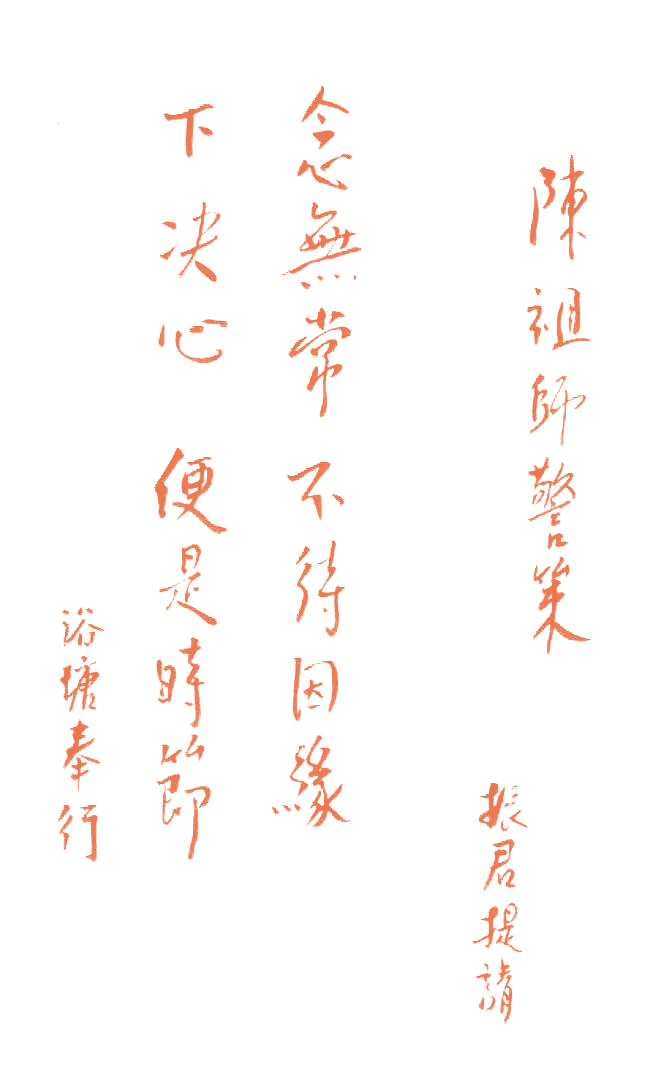 陳祖師警策
振君提請
念無常 不待因緣
下决心 便是時節
浴塘奉行